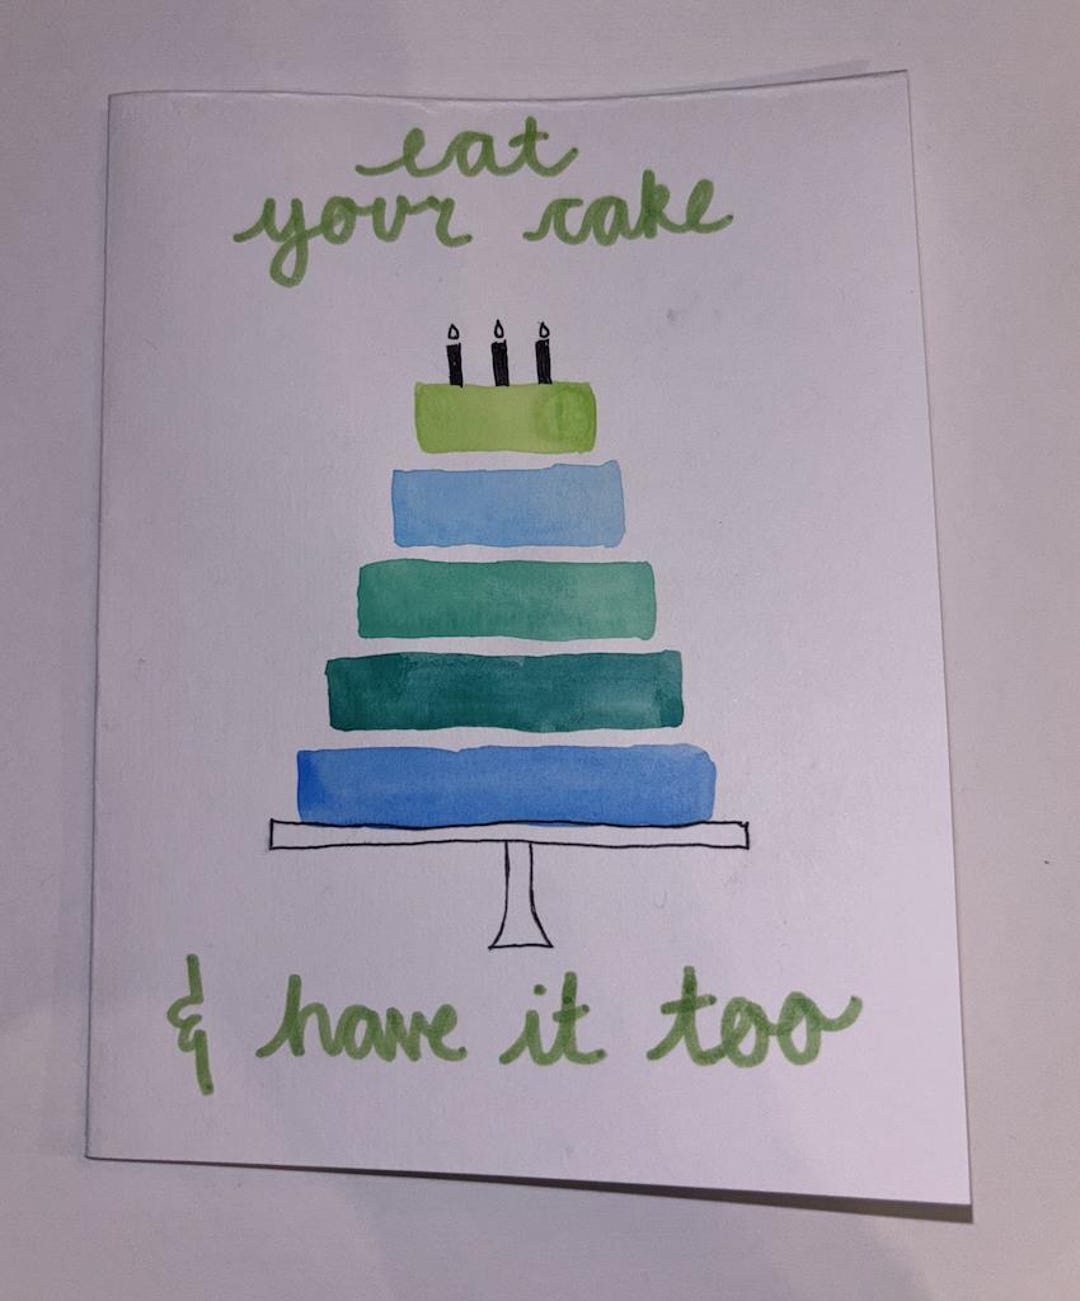 eat
your cake
& have it too